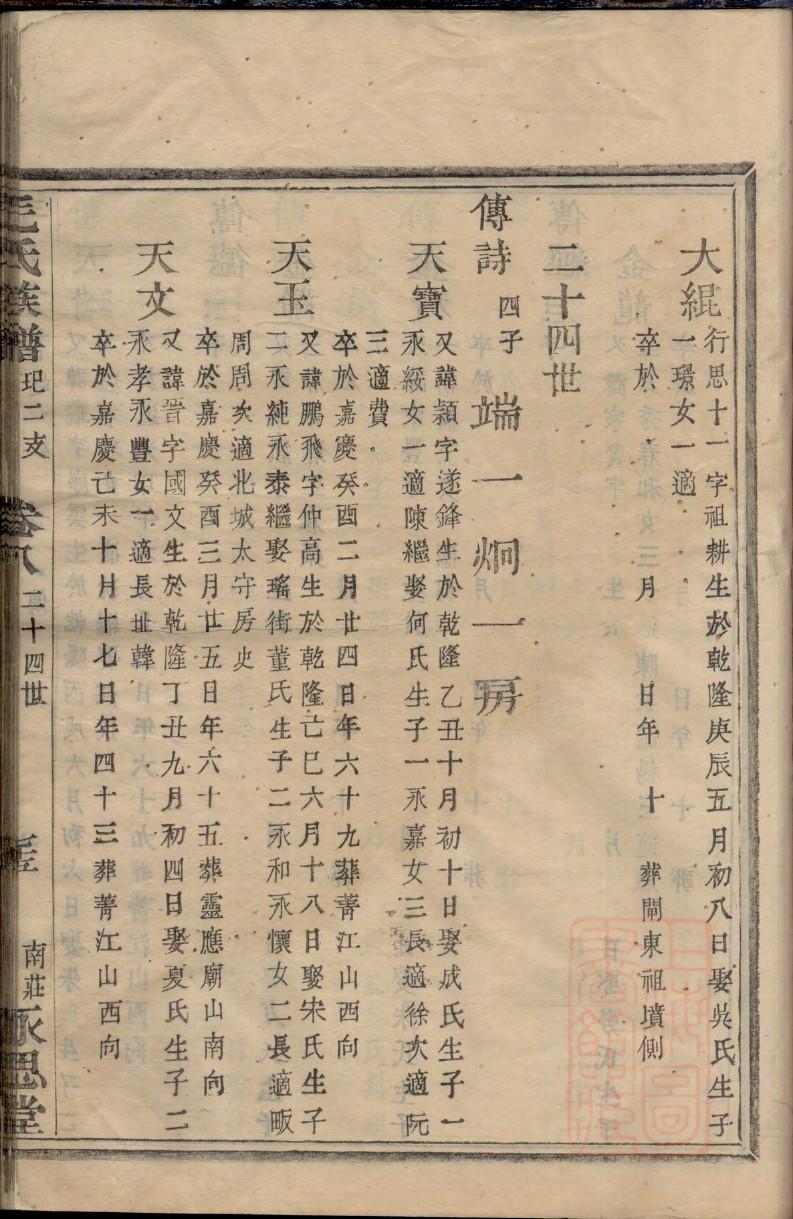 大緄
行思十一字祖耕生於乾隆庚辰五月初八日娶吳氏生子
一璟女一適
卒於　月　日年　十　葬閘東祖墳側
二十四世
傳詩　四子　端一炯一房
天寶
又諱穎字遂鋒生於乾隆乙丑十月初十日娶成氏生子一
永綏女一適陳繼娶何氏生子一永嘉女三長適徐次適阮
三適費
卒於嘉慶癸酉二月廿四日年六十九葬菁江山西向
天玉
又諱鵬飛字仲高生於乾隆己巳六月十八日娶宋氏生子
二永純永泰繼娶瑤街董氏生子二永和永懷女二長適畈
周周次適北城太守房史
卒於嘉慶癸酉三月廿五日年六十五葬靈應廟山南向
天文
又諱晉字國文生於乾隆丁丑九月初四日娶夏氏生子二
永孝永豐女一適長址韓
卒於嘉慶己未十月十七日年四十三葬菁江山西向
氏族譜　玘二支　卷八　二十四世　南莊　永思堂